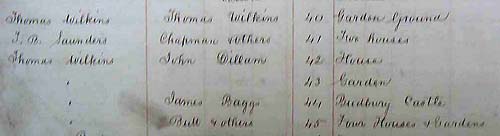 Thomas Wilkins Thomas Wilkins 40 Garden Ground
T. B. Saunders Chapman & others 41 Two houses
Thomas Wilkins John Dillam 42 House
" 43 Garden
" James Baggs 44 Budbury Castle
" Butt & others 45 Four Houses & Gardens